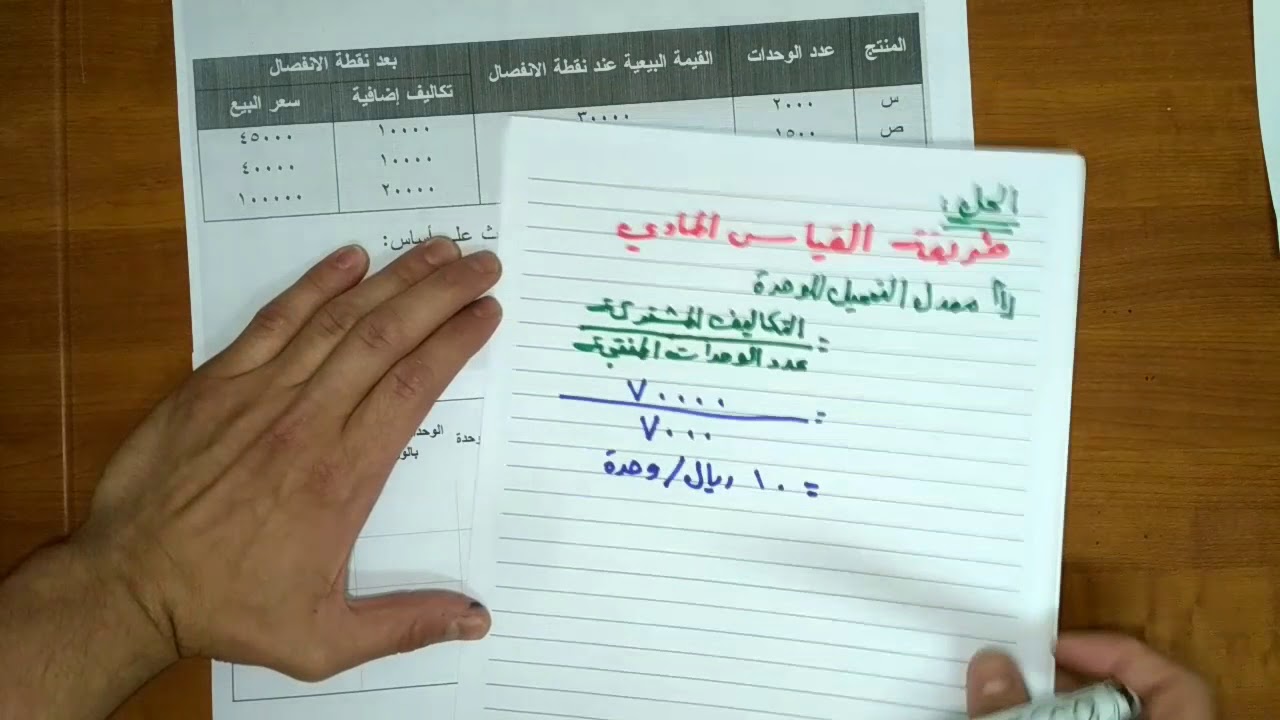 المنتج عدد الوحدات القيمة البيعية عند نقطة الانفصال بعد نقطة الانفصال
تكاليف إضافية سعر البيع
س ٢٠٠٠ ٣٠٠٠٠ ١٠٠٠٠ ٤٥٠٠٠
ص ١٥٠٠ ١٠٠٠٠ ٤٠٠٠٠
٢٠٠٠٠ ١٠٠٠٠٠
أساس:
الوحدة
الحل:
طريقة القياس المادي
معدل التحميل للوحدة
= التكاليف المشتركة
عدد الوحدات المنتجة
= ٧٠٠٠٠
٧٠٠٠
= ١٠ ريال/وحدة